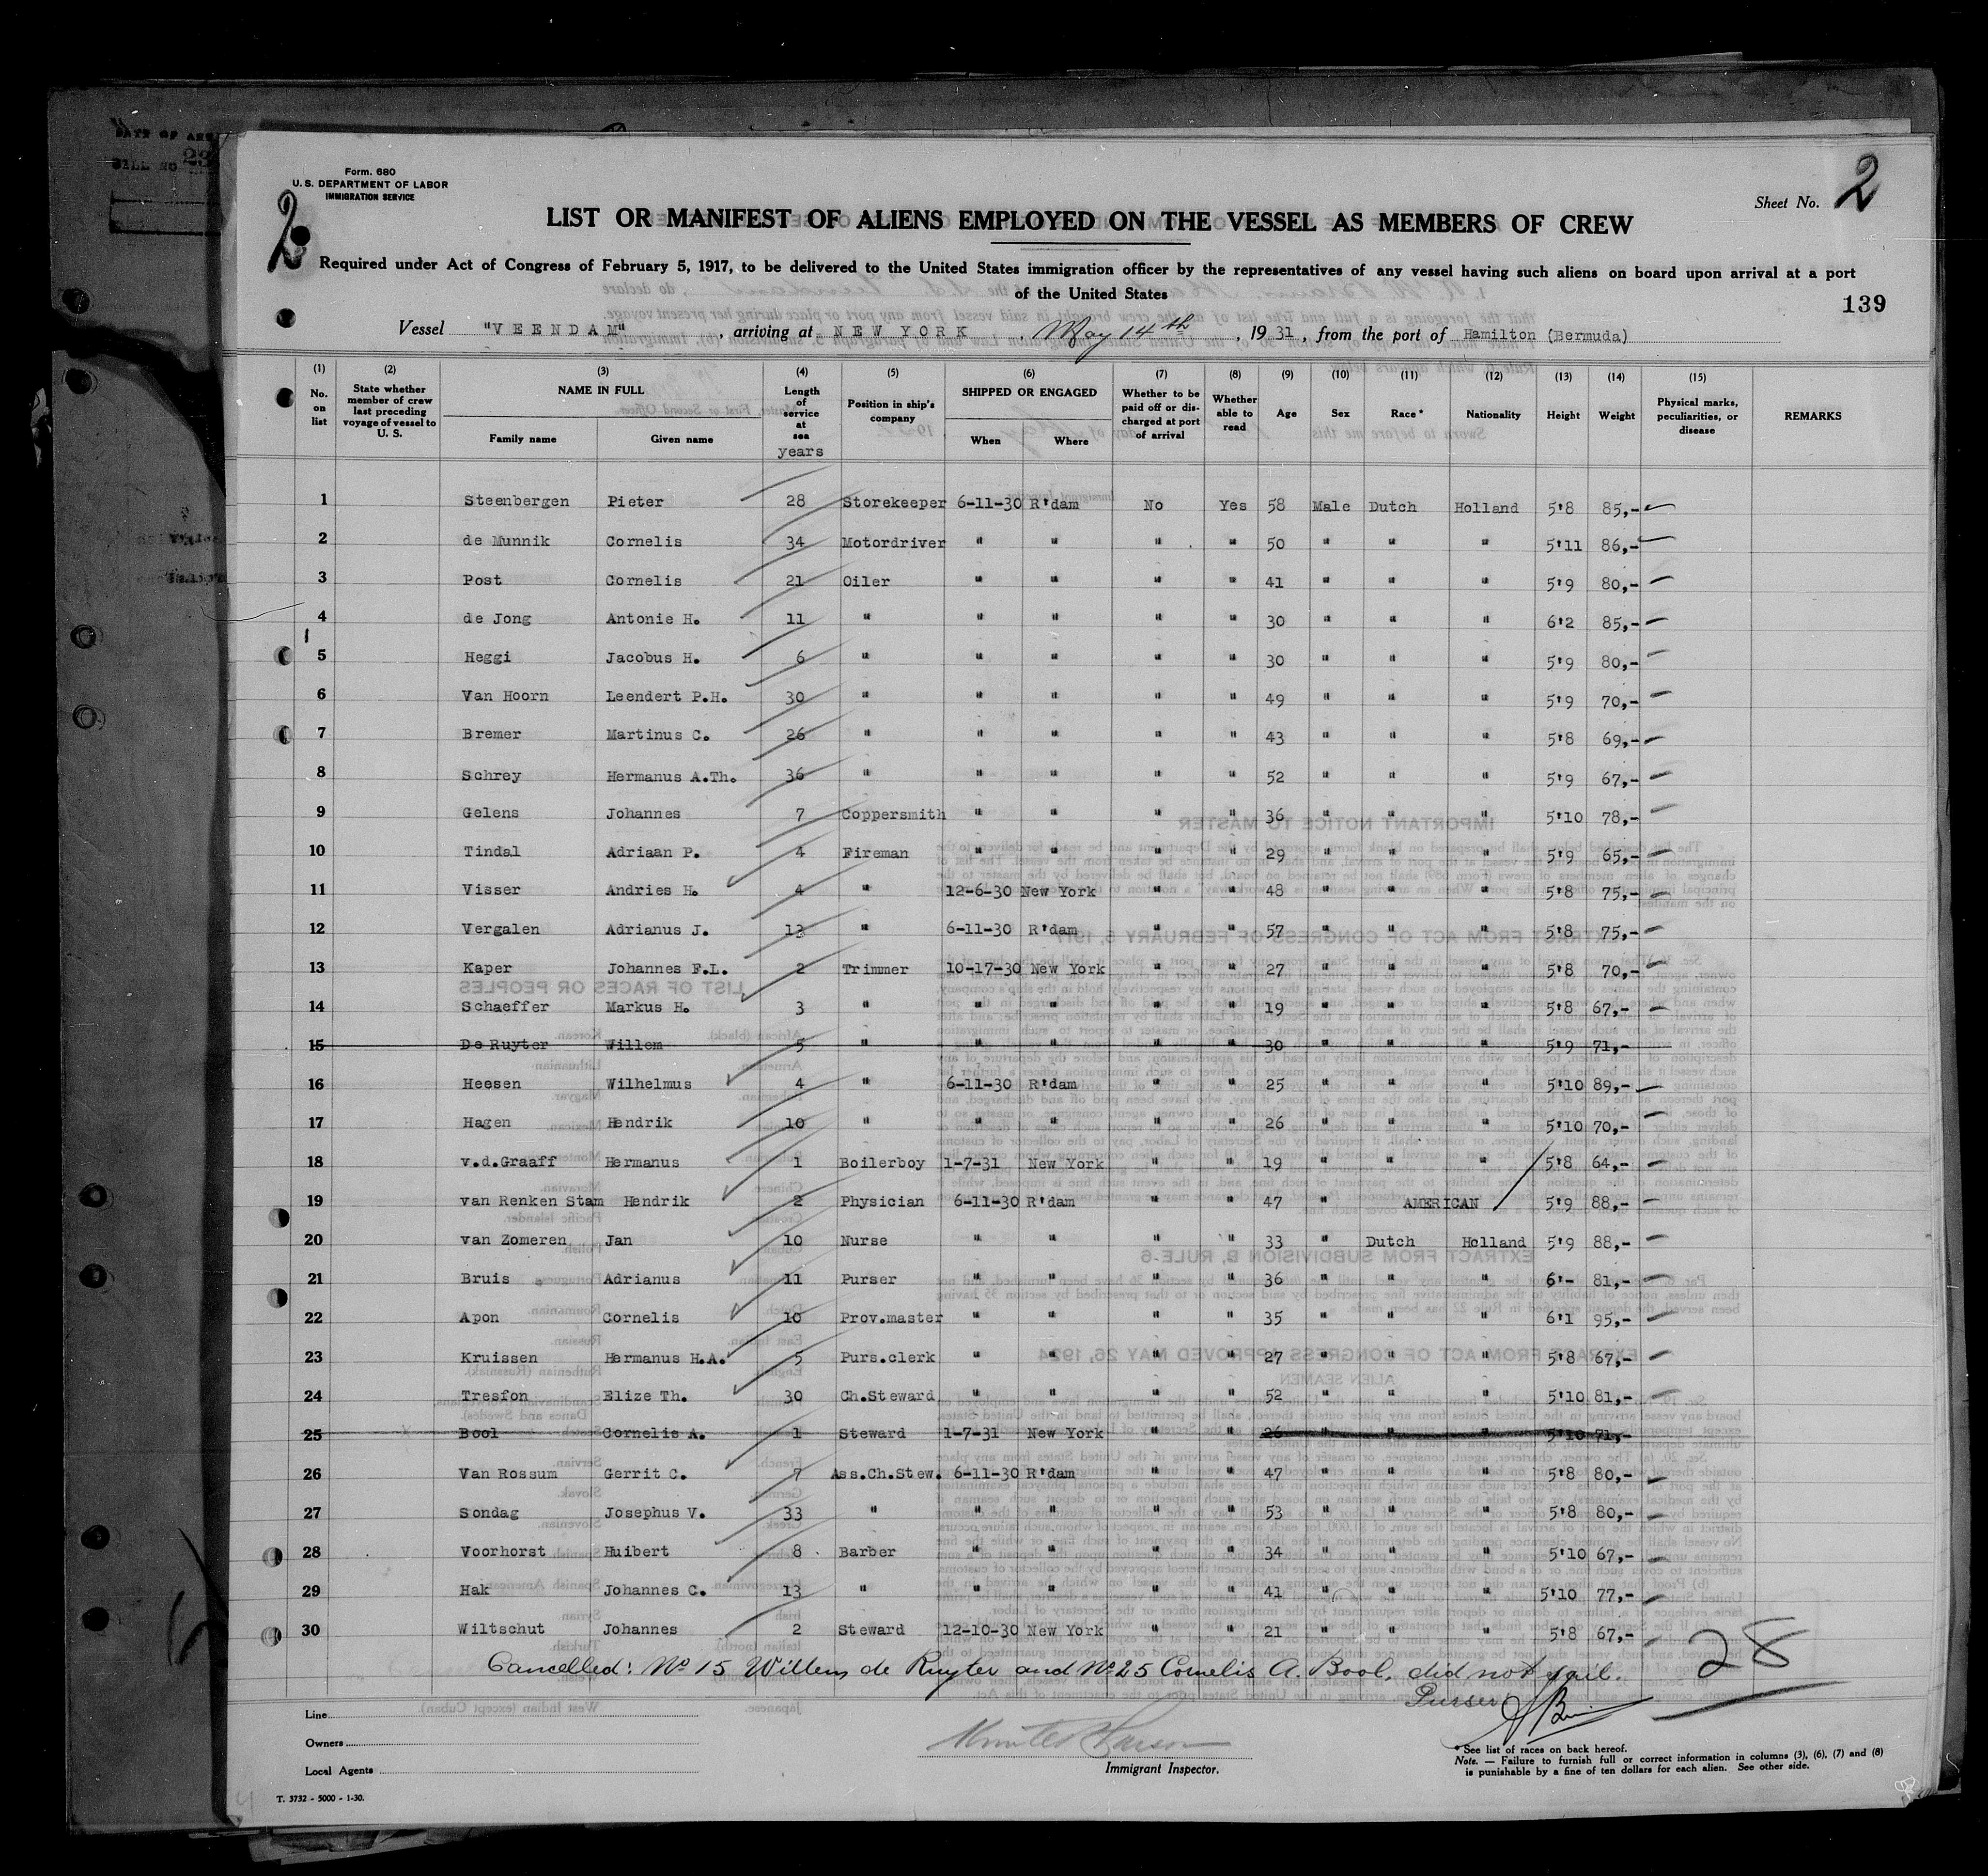 Form. 680
U. S. DEPARTMENT OF LABOR
IMMIGRATION SERVICE
Sheet No. 2
2
LIST OR MANIFEST OF ALIENS EMPLOYED ON THE VESSEL AS MEMBERS OF CREW
Required under Act of Congress of February 5, 1917, to be delivered to the United States immigration officer by the representatives of any vessel having such aliens on board upon arrival at a port
of the United States
139
Vessel "VEENDAM", arriving at NEW YORK, May 14th, 1931, from the port of Hamilton (Bermuda)
(1) (2) (3) (4) (5) (6) (7) (8) (9) (10) (11) (12) (13) (14) (15)
No. on list State whether member of crew last preceding voyage of vessel to U. S. NAME IN FULL Family name Given name Length of service at sea years Position in ship's company SHIPPED OR ENGAGED When Where Whether to be paid off or discharged at port of arrival Whether able to read Age Sex Race* Nationality Height Weight Physical marks, peculiarities, or disease REMARKS
1 Steenbergen Pieter 28 Storekeeper 6-11-30 R'dam No Yes 58 Male Dutch Holland 5'8 85,-
2 de Munnik Cornelis 34 Motordriver " " " " 50 " " " 5'11 86,-
3 Post Cornelis 21 Oiler " " " " 41 " " " 5'9 80,-
4 de Jong Antonie H. 11 " " " " " 30 " " " 6'2 85,-
5 Heggi Jacobus H. 6 " " " " " 30 " " " 5'9 80,-
6 Van Hoorn Leendert P.H. 30 " " " " " 49 " " " 5'9 70,-
7 Bremer Martinus C. 26 " " " " " 43 " " " 5'8 69,-
8 Schrey Hermanus A.Th. 36 " " " " " 52 " " " 5'9 67,-
9 Gelens Johannes 7 Coppersmith " " " " 36 " " " 5'10 78,-
10 Tindal Adriaan P. 4 Fireman " " " " 29 " " " 5'9 65,-
11 Visser Andries H. 4 " 12-6-30 New York " " 48 " " " 5'8 75,-
12 Vergalen Adrianus J. 13 " 6-11-30 R'dam " " 57 " " " 5'8 75,-
13 Kaper Johannes F.L. 2 Trimmer 10-17-30 New York " " 27 " " " 5'8 70,-
14 Schaeffer Markus H. 3 " " " " " 19 " " " 5'8 67,-
15 De Ruyter Willem 5 " " " " " 30 " " " 5'9 71,-
16 Heesen Wilhelmus 4 " 6-11-30 R'dam " " 25 " " " 5'10 89,-
17 Hagen Hendrik 10 " " " " " 26 " " " 5'10 70,-
18 v.d.Graaff Hermanus 1 Boilerboy 1-7-31 New York " " 19 " " " 5'8 64,-
19 van Renken Stam Hendrik 2 Physician 6-11-30 R'dam " " 47 " AMERICAN 5'9 88,-
20 van Zomeren Jan 10 Nurse " " " " 33 " Dutch Holland 5'9 88,-
21 Bruis Adrianus 11 Purser " " " " 36 " " " 6'- 81,-
22 Apon Cornelis 10 Prov.master " " " " 35 " " " 6'1 95,-
23 Kruissen Hermanus H.A. 5 Purs.clerk " " " " 27 " " " 5'8 67,-
24 Tresfon Elize Th. 30 Ch.Steward " " " " 52 " " " 5'10 81,-
25 Bool Cornelis A. 1 Steward 1-7-31 New York " " 26 " " " 5'10 71,-
26 Van Rossum Gerrit C. 7 Ass.Ch.Stew. 6-11-30 R'dam " " 47 " " " 5'8 80,-
27 Sondag Josephus V. 33 " " " " " 53 " " " 5'8 80,-
28 Voorhorst Huibert 8 Barber " " " " 34 " " " 5'10 67,-
29 Hak Johannes C. 13 " " " " " 41 " " " 5'10 77,-
30 Wiltschut Johannes 2 Steward 12-10-30 New York " " 21 " " " 5'8 67,-
28
Cancelled: No 15 Willem de Ruyter and No 25 Cornelis A. Bool, did not sail.
Purser
Line
Owners
Local Agents
Immigrant Inspector.
* See list of races on back hereof.
Note. — Failure to furnish full or correct information in columns (3), (6), (7) and (8)
is punishable by a fine of ten dollars for each alien. See other side.
T. 3732 - 5000 - 1-30.